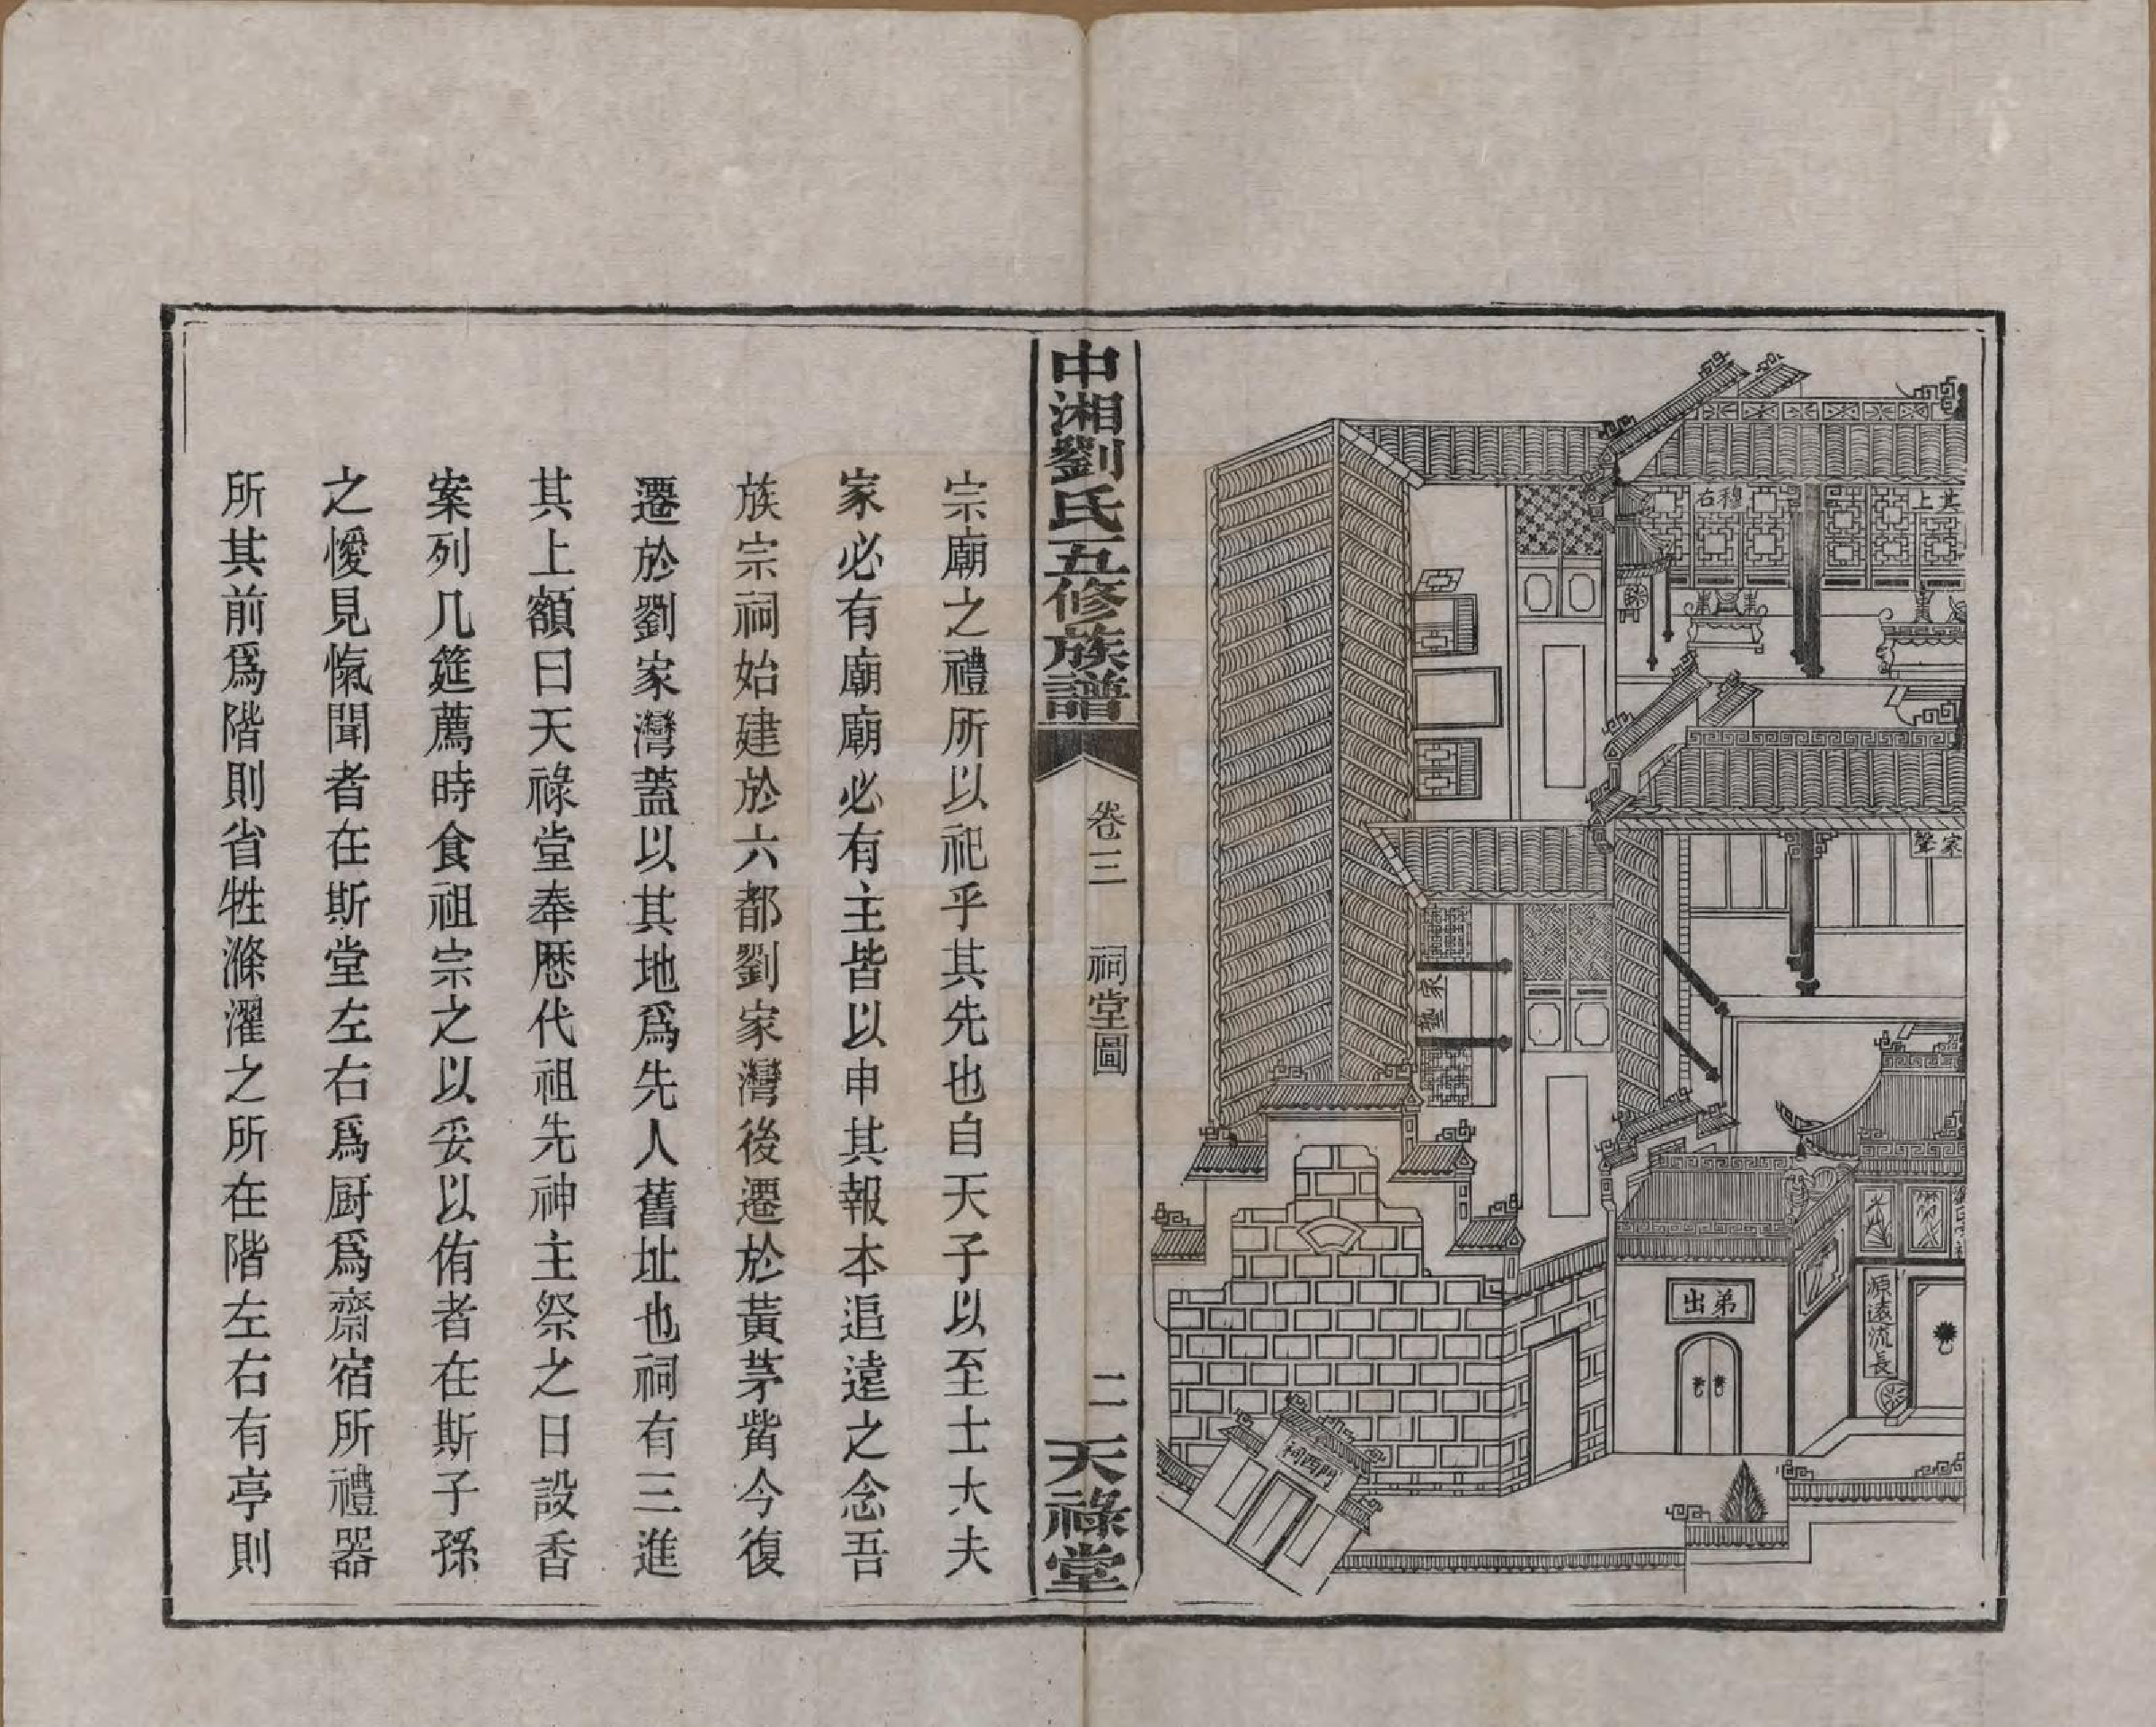 其上
右穆
家聲
家塾
弟出
源遠流長
祠西門
中湘劉氏五修族譜
卷三
祠堂圖
二
天祿堂
宗廟之禮所以祀乎其先也自天子以至士大夫
家必有廟廟必有主皆以申其報本追遠之念吾
族宗祠始建於六都劉家灣後遷於黃茅甾今復
遷於劉家灣蓋以其地爲先人舊址也祠有三進
其上額曰天祿堂奉歷代祖先神主祭之日設香
案列几筵薦時食祖宗之以妥以侑者在斯子孫
之愾見愾聞者在斯堂左右爲厨爲齋宿所禮器
所其前爲階則省牲滌濯之所在階左右有亭則